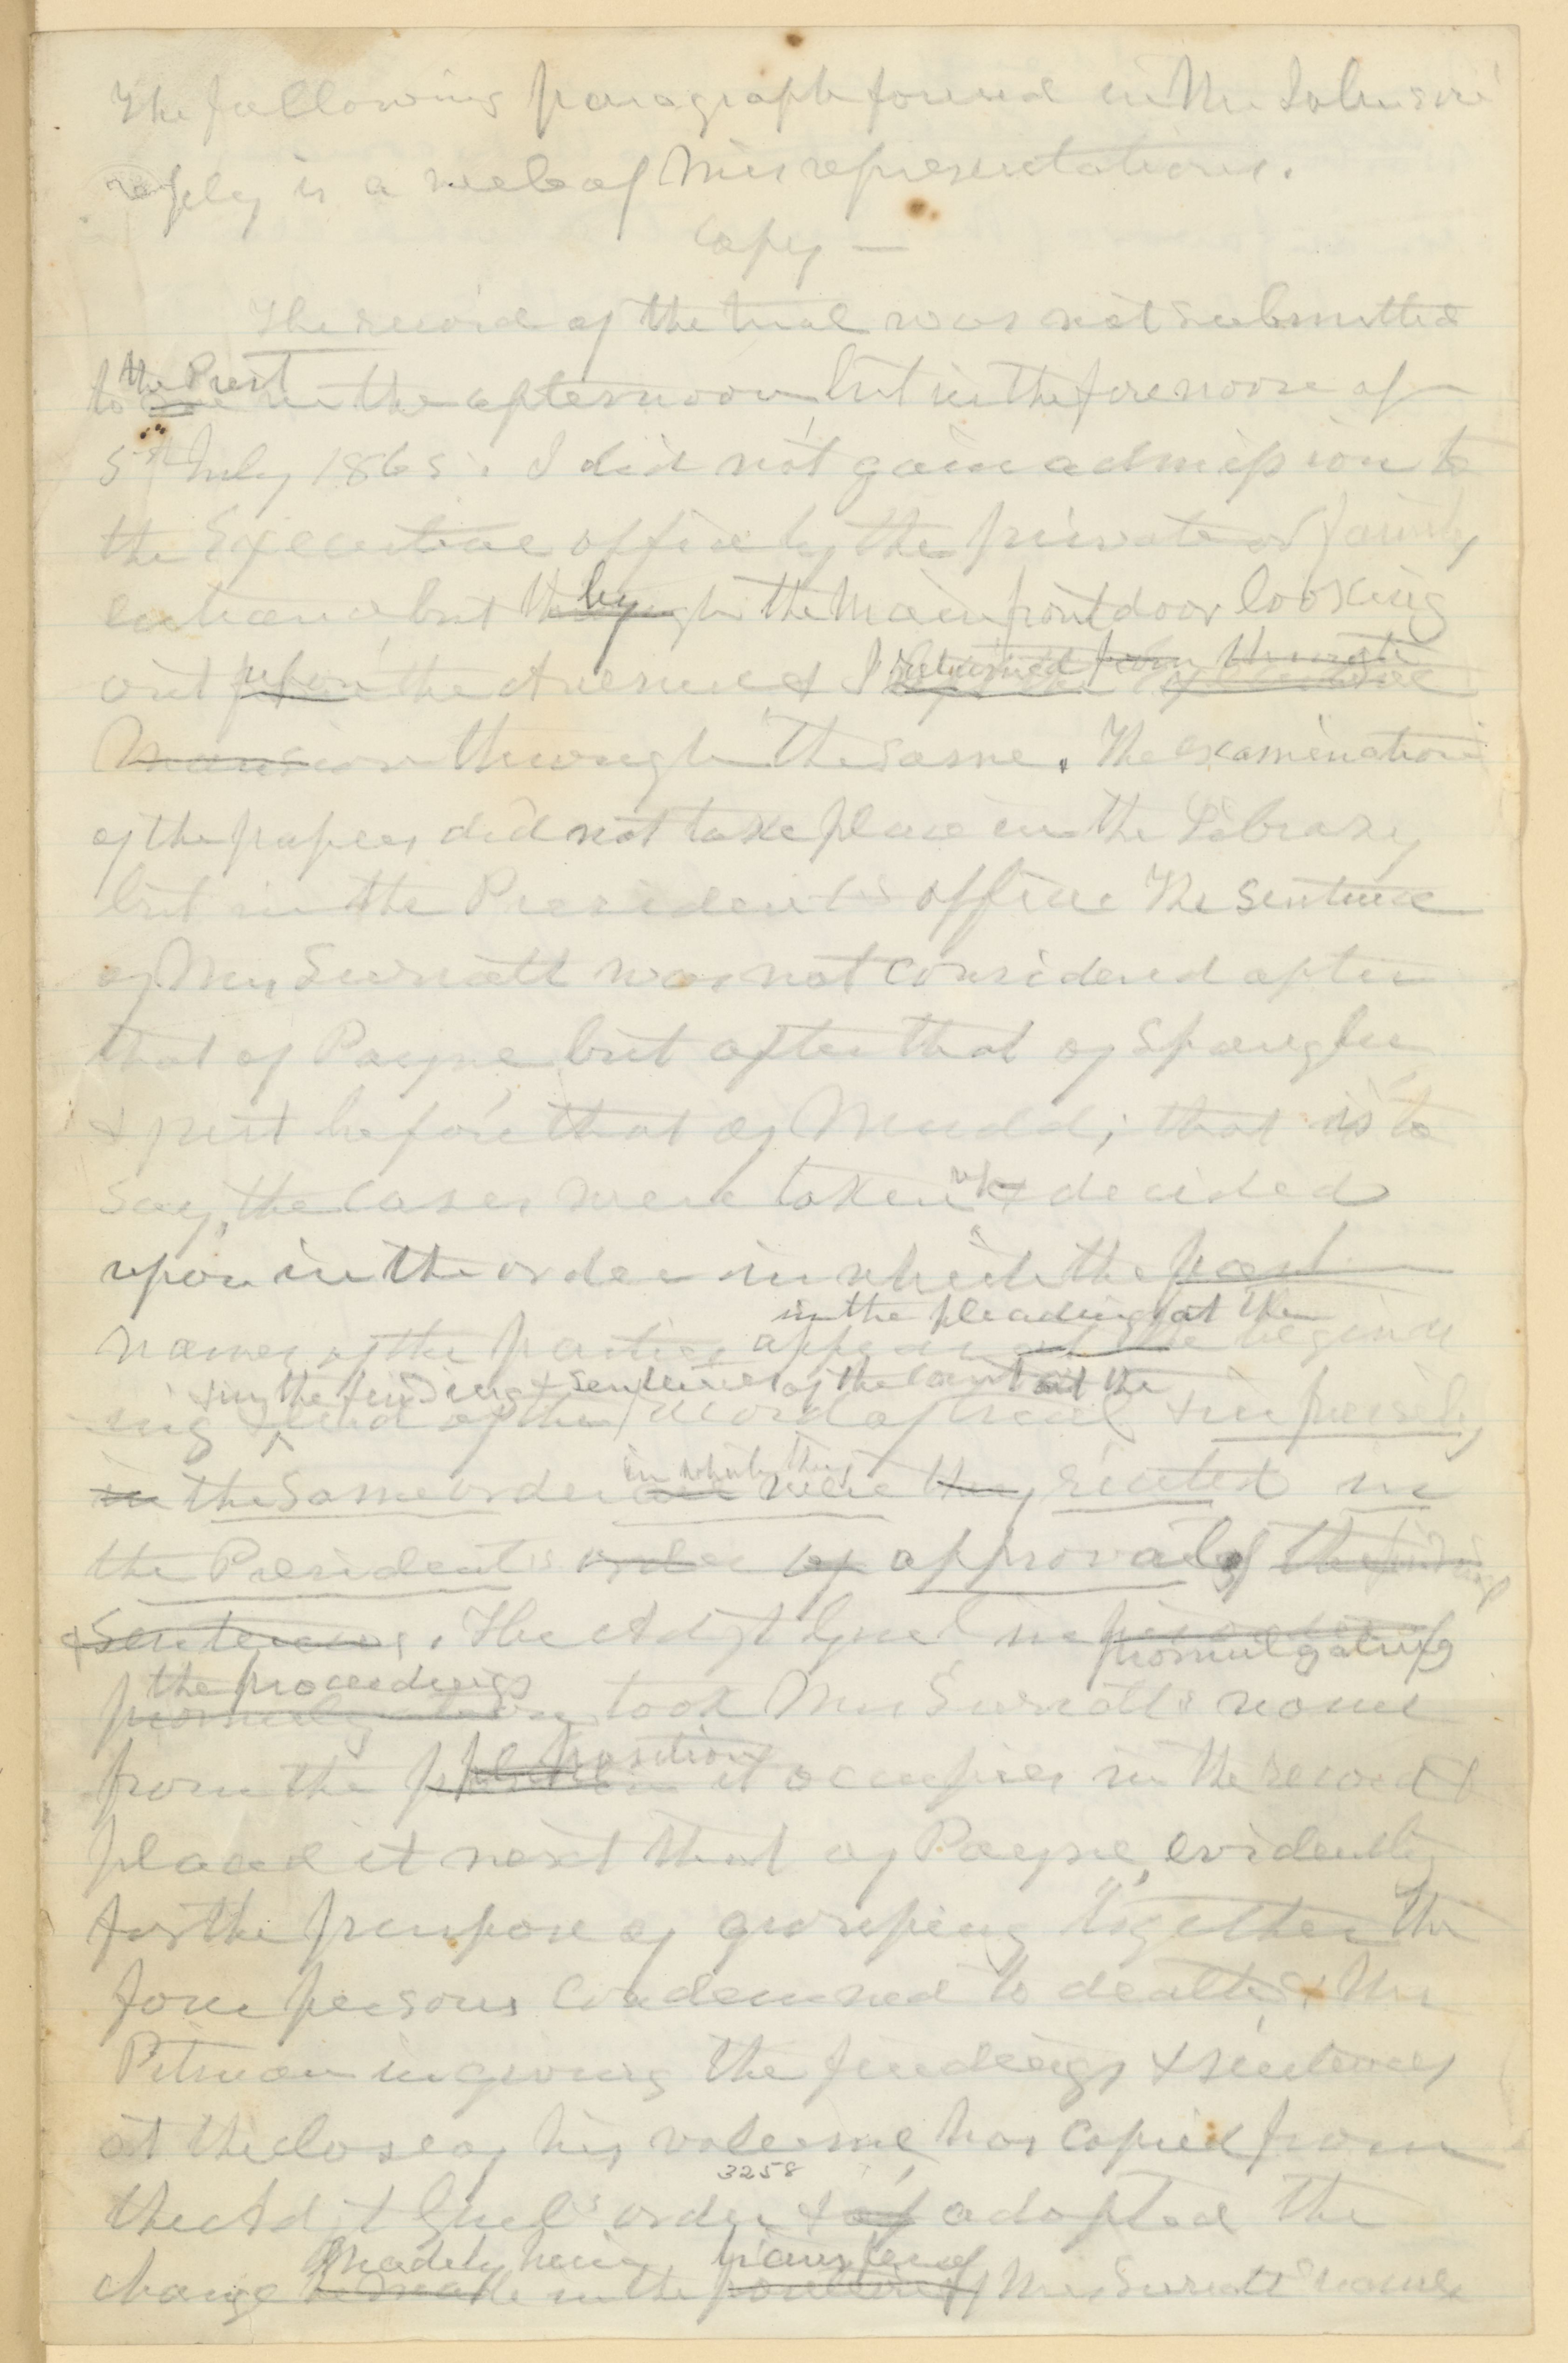 The following paragraph found in Mr Johnsons
reply is a web of misrepresentations.
Copy —
The record of the trial was not submitted
the Prest
to me in the afternoon but in the forenoon of
5th July 1865. I did not gain admission to
the Executive office by the private or family
by
entrance but through the main front door looking
returned from
out upon the Avenue & I
Mansion through the same. The examination
of the papers did not take place in the Library
but in the President's office The sentence
of Mrs Surratt was not considered after
that of Payne but after that of Spangler
& just before that of Mudd; that is to
up
say, the cases were taken & decided
upon in the order in which the
in the pleadings at the
names of the parties appear at the beginn
& in the findings & sentences of the court at the
ing & end of the record of trial & in precisely
in which they
in the same order as were they recited in
the President's order of approval of the findings
& sentences. The Adjt Genl in
promulgating
the proceedings
took Mrs Surratt's name
position
from the it occupies in the record &
placed it next that of Payne, evidently
for the purpose of grouping together the
four persons condemned to death. Mr
Pitman in giving the findings & sentences
at the close of his volume, has copied from
3258
the Adjt Genl's order & of adopted the
made by him, transfer of
change he made in the position of Mrs Surratt's name